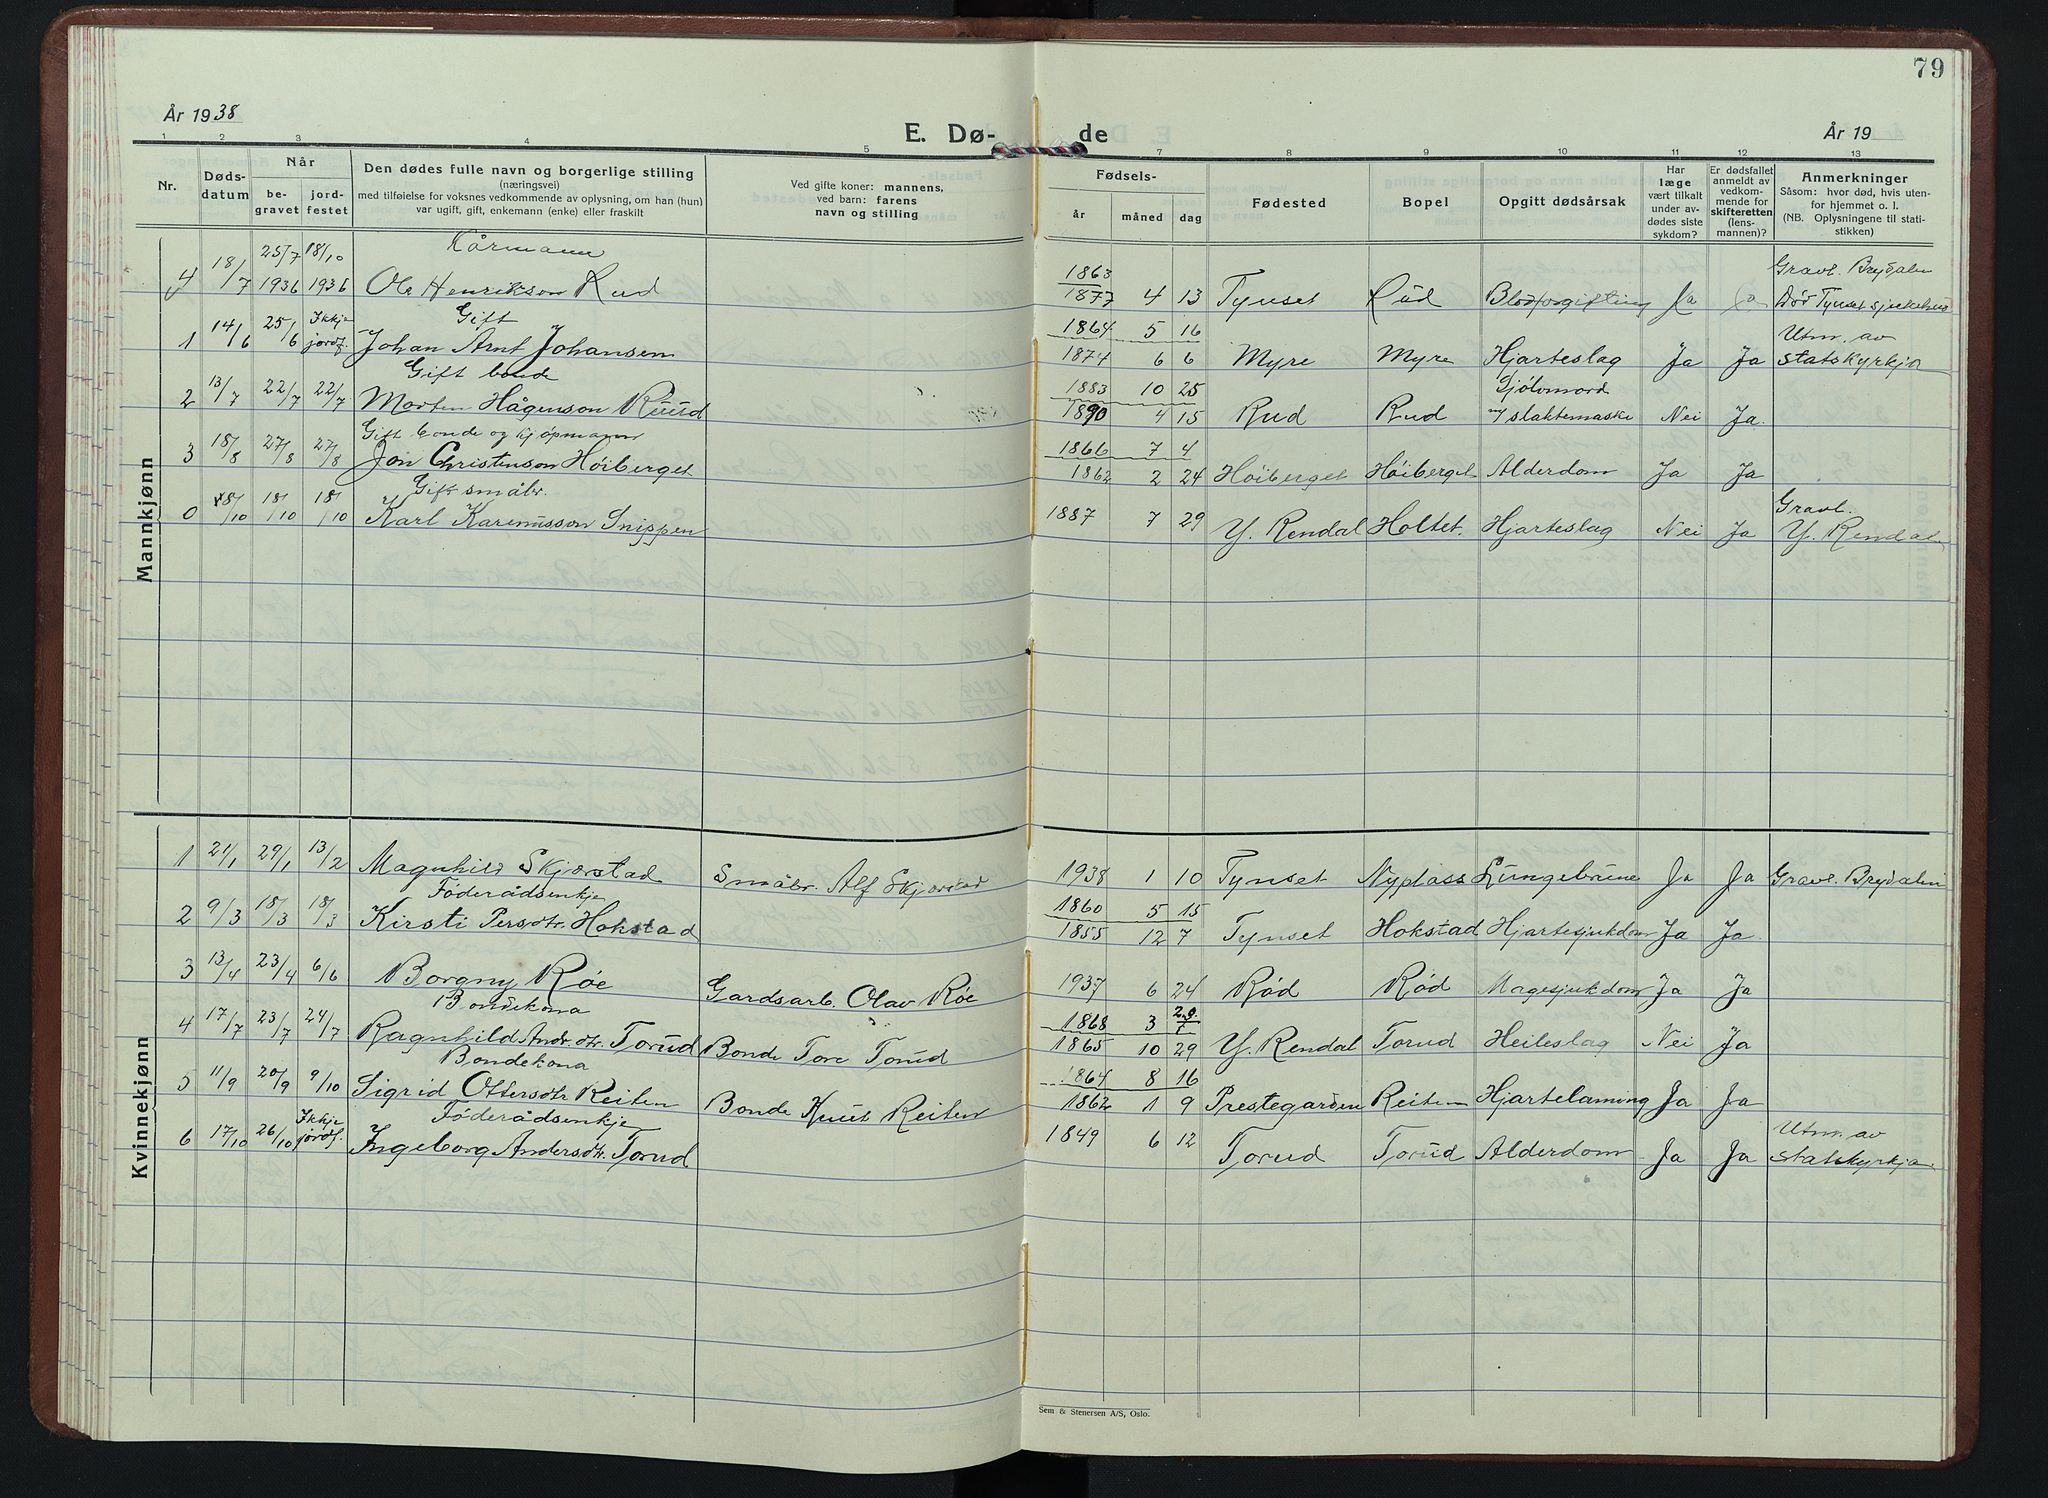 79
År 1938
E. Dø-
de
År 19
1 2 3 4 5 7 8 9 10 11 12 13
Nr.
Døds-
datum
Når
be-
gravet
jord-
festet
Den dødes fulle navn og borgerlige stilling
(næringsvei)
med tilføielse for voksnes vedkommende av oplysning, om han (hun)
var ugift, gift, enkemann (enke) eller fraskilt
Ved gifte koner: mannens,
ved barn: farens
navn og stilling
Fødsels-
år måned dag
Fødested
Bopel
Opgitt dødsårsak
Har
læge
vært tilkalt
under av-
dødes siste
sykdom?
Er dødsfallet
anmeldt av
vedkom-
mende for
skifteretten
(lens-
mannen)?
Anmerkninger
Såsom: hvor død, hvis uten-
for hjemmet o. l.
(NB. Oplysningene til stati-
stikken)
Mannkjønn
25/7 18/10 Kårmann 1863 Gravl. Brydalen
4 18/7 1936 1936 Ole Henrikson Rud 1877 4 13 Tynset Rud Blodforgifting Ja Ja Død Tynset sjukehus
14/6 25/6 Ikkje Gift 1864 5 16 Utm. av
1 jordf. Johan Arnt Johansen 1874 6 6 Myre Myre Hjarteslag Ja Ja statskyrkja
Gift bonde 1883 10 25 Sjølvmord
2 13/7 22/7 22/7 Morten Hågenson Ruud 1890 4 15 Rud Rud m/slaktemaske Nei Ja.
Gift bonde og kjøpmann 1866 7 4
3 18/8 27/8 27/8 Jon Christenson Høiberget 1862 2 24 Høiberget Høiberget Alderdom Ja Ja
Gift småbr. Gravl.
0 8/10 18/10 18/10 Karl Karenusson Snippen 1887 7 29 Y. Rendal Holtet. Hjarteslag Nei Ja Y. Rendal
Kvinnekjønn
1 21/1 29/1 13/2 Magnhild Skjærstad Småbr. Alf Skjærstad 1938 1 10 Tynset Nyplass Lungebrune Ja Ja Gravl. Brydalen
Føderådsenkje 1860 5 15
2 9/3 18/3 18/3 Kirsti Persdtr. Hokstad 1855 12 7 Tynset Hokstad Hjartesjukdom Ja Ja.
3 13/4 23/4 6/6 Borgny Røe Gardsarb. Olav Røe 1937 6 24 Rød Rød Magesjukdom Ja Ja
Bondekona 1868 3
4 17/7 23/7 24/7 Ragnhild Andr.dtr. Torud Bonde Tore Torud 1865 10 29 Y. Rendal Torud Heileslag Nei Ja
Bondekona 1864 8 16
5 11/9 20/9 9/10 Sigrid Ottersdtr Reiten Bonde Knut Reiten 1862 1 9 Prestegarden Reiten Hjartelaming Ja Ja
Ikkje Føderådsenkje Utm. av
6 17/10 26/10 jordf. Ingeborg Andersdtr. Torud 1849 6 12 Torud Torud Alderdom Ja Ja statskyrkja.
Sem & Stenersen A/S, Oslo.